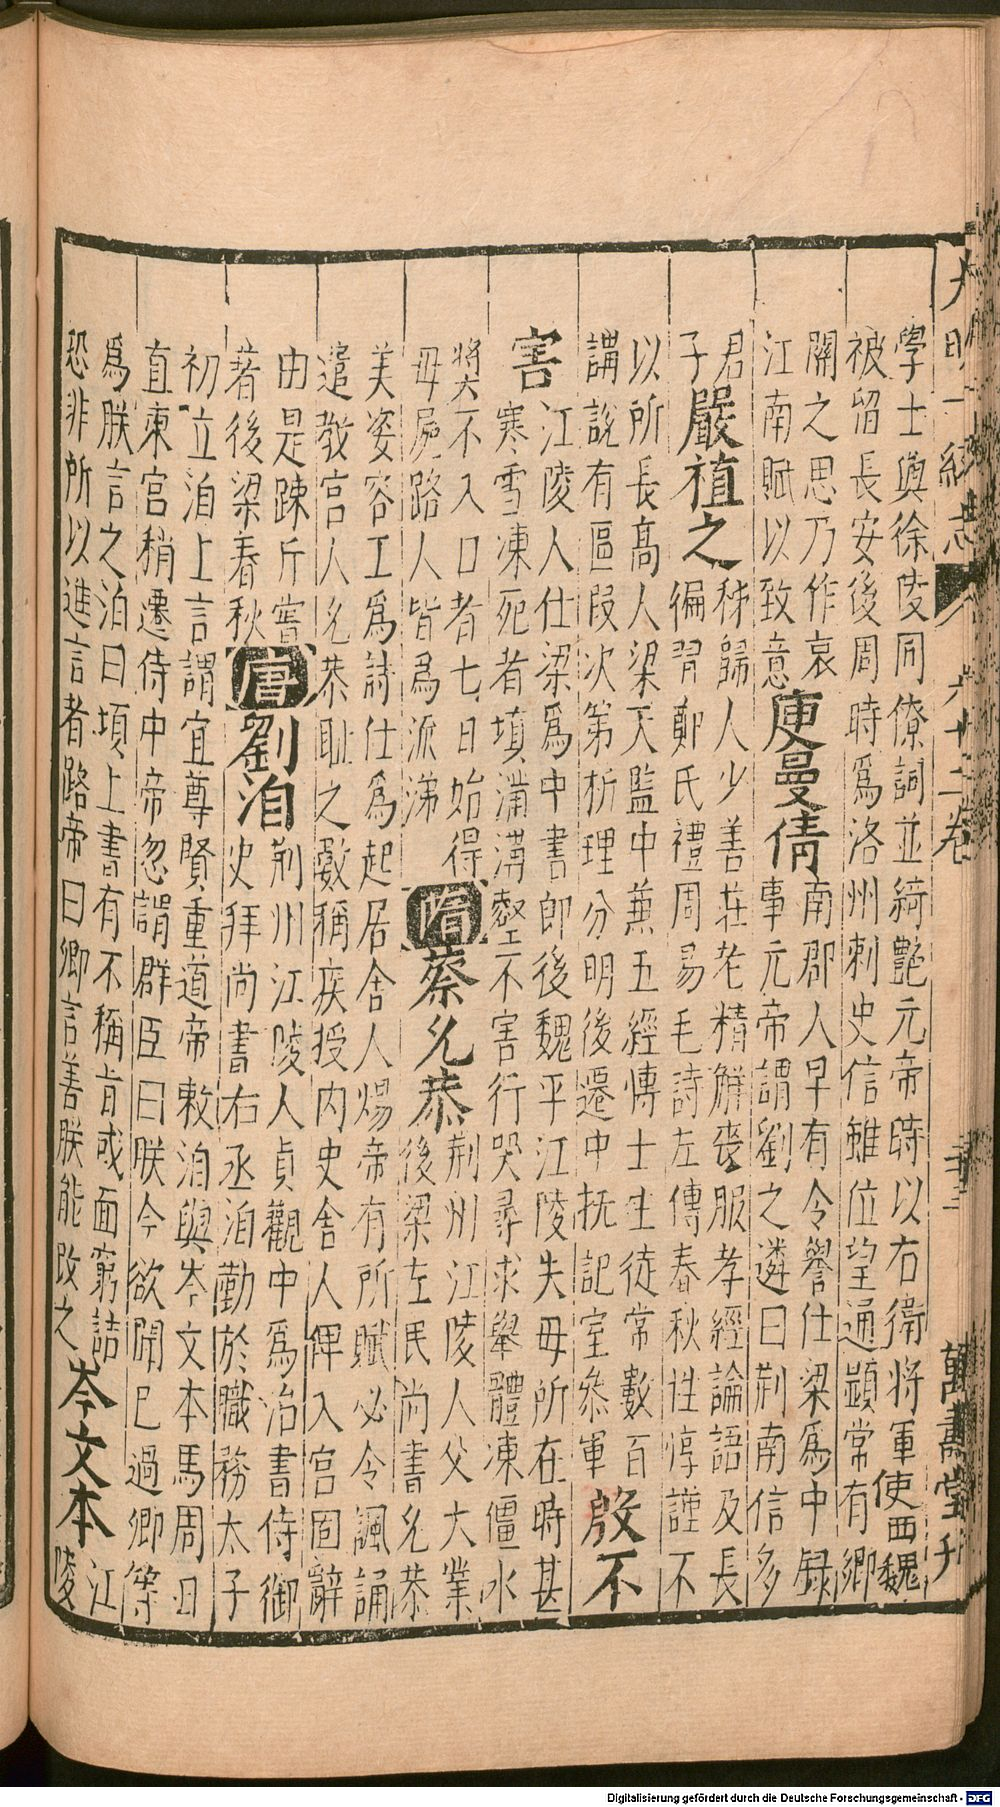 大明一統志 六十二卷 二十二 萬壽堂刊
學士與徐陵同僚詞並綺艷元帝時以右衛將軍使西魏
被留長安後周時爲洛州刺史信雖位望通顯常有鄉
關之思乃作哀
江南賦以致意
庾曼倩
南郡人早有令譽仕梁爲中録
事元帝謂劉之遴曰荆南信多
君
子
嚴植之
秭歸人少善莊老精觧喪服孝經論語及長
徧習鄭氏禮周易毛詩左傳春秋性惇謹不
以所長髙人梁天監中兼五經博士生徒常數百
講說有區叚次第析理分明後遷中撫記室叅軍
殷不
害
江陵人仕梁爲中書郎後魏平江陵失母所在時甚
寒雪凍死者填滿溝壑不害行哭尋求舉體凍僵水
漿不入口者七日始得
母屍路人皆爲流涕
隋
蔡允恭
荆州江陵人父大業
後梁左民尚書允恭
美姿容工爲詩仕爲起居舍人煬帝有所賦必令諷誦
遣教宫人允恭耻之數稱疾授内史舍人俾入宫固辭
由是踈斥嘗
著後梁春秋
唐
劉洎
荆州江陵人貞觀中爲治書侍御
史拜尚書右丞洎勤於職務太子
初立洎上言謂宜尊賢重道帝敕洎與岑文本馬周日
直東宫稍遷侍中帝忽謂群臣曰朕今欲聞已過卿等
爲朕言之洎曰頃上書有不稱旨或面窮詰
恐非所以進言者路帝曰卿言善朕能改之
岑文本
江
陵
Digitalisierung gefördert durch die Deutsche Forschungsgemeinschaft - DFG